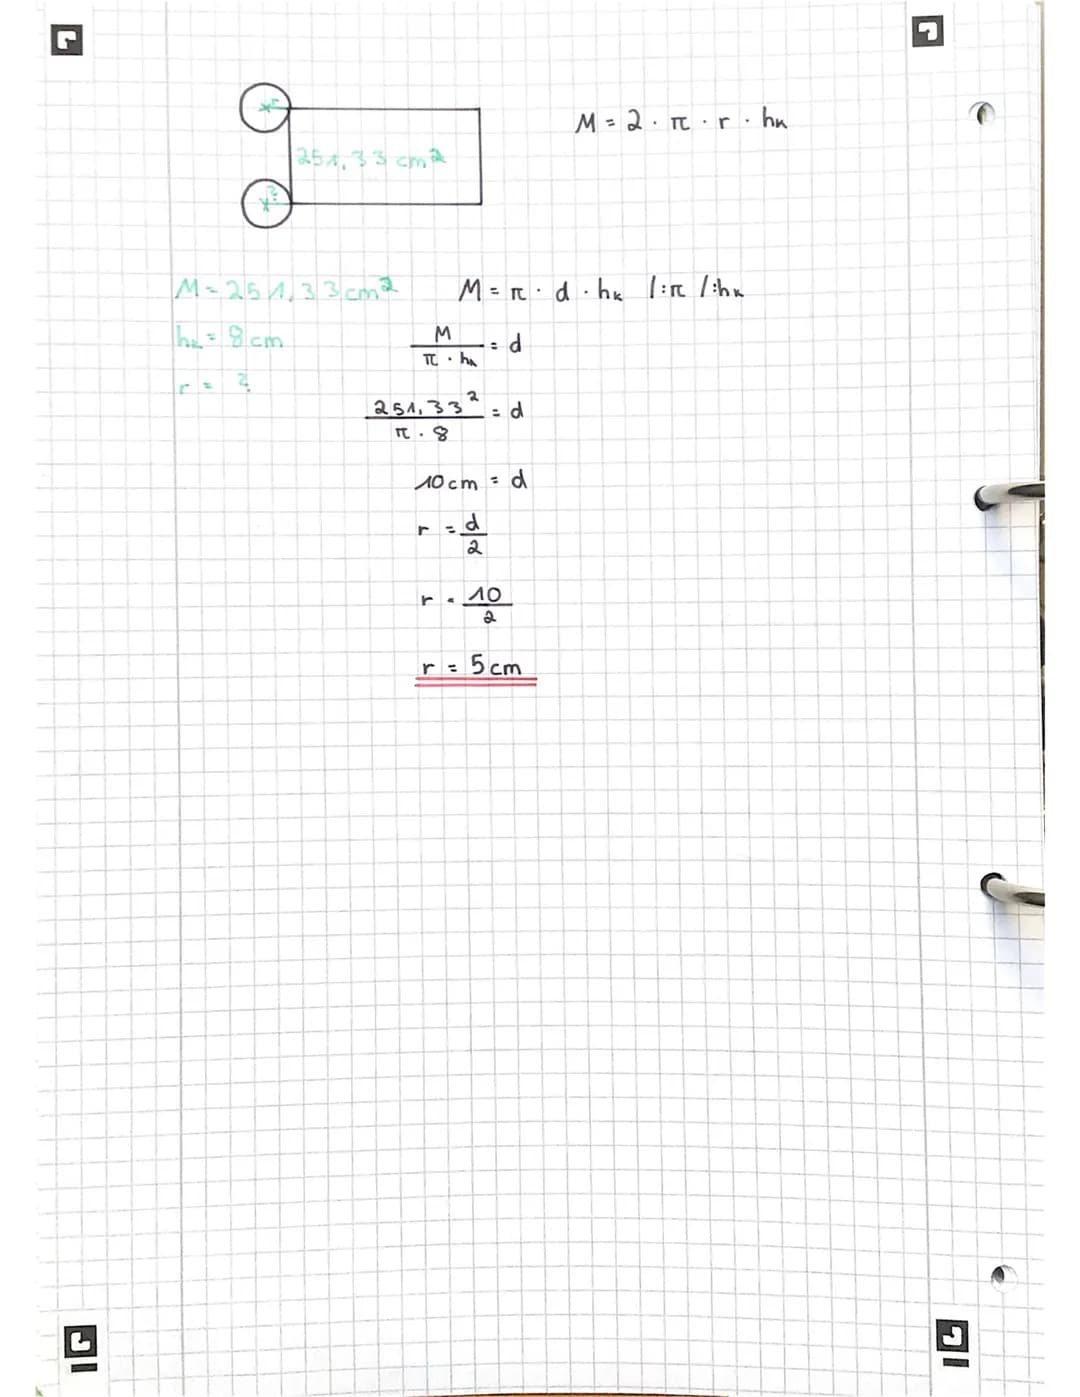 M = 2 · π · r · hₖ
251,33 cm²
M = 251,33 cm²
hₖ = 8 cm
r = ?
M = π · d · hₖ /:π /:hₖ
M / (π · hₖ) = d
251,33² / (π · 8) = d
10 cm = d
r = d/2
r = 10/2
r = 5 cm